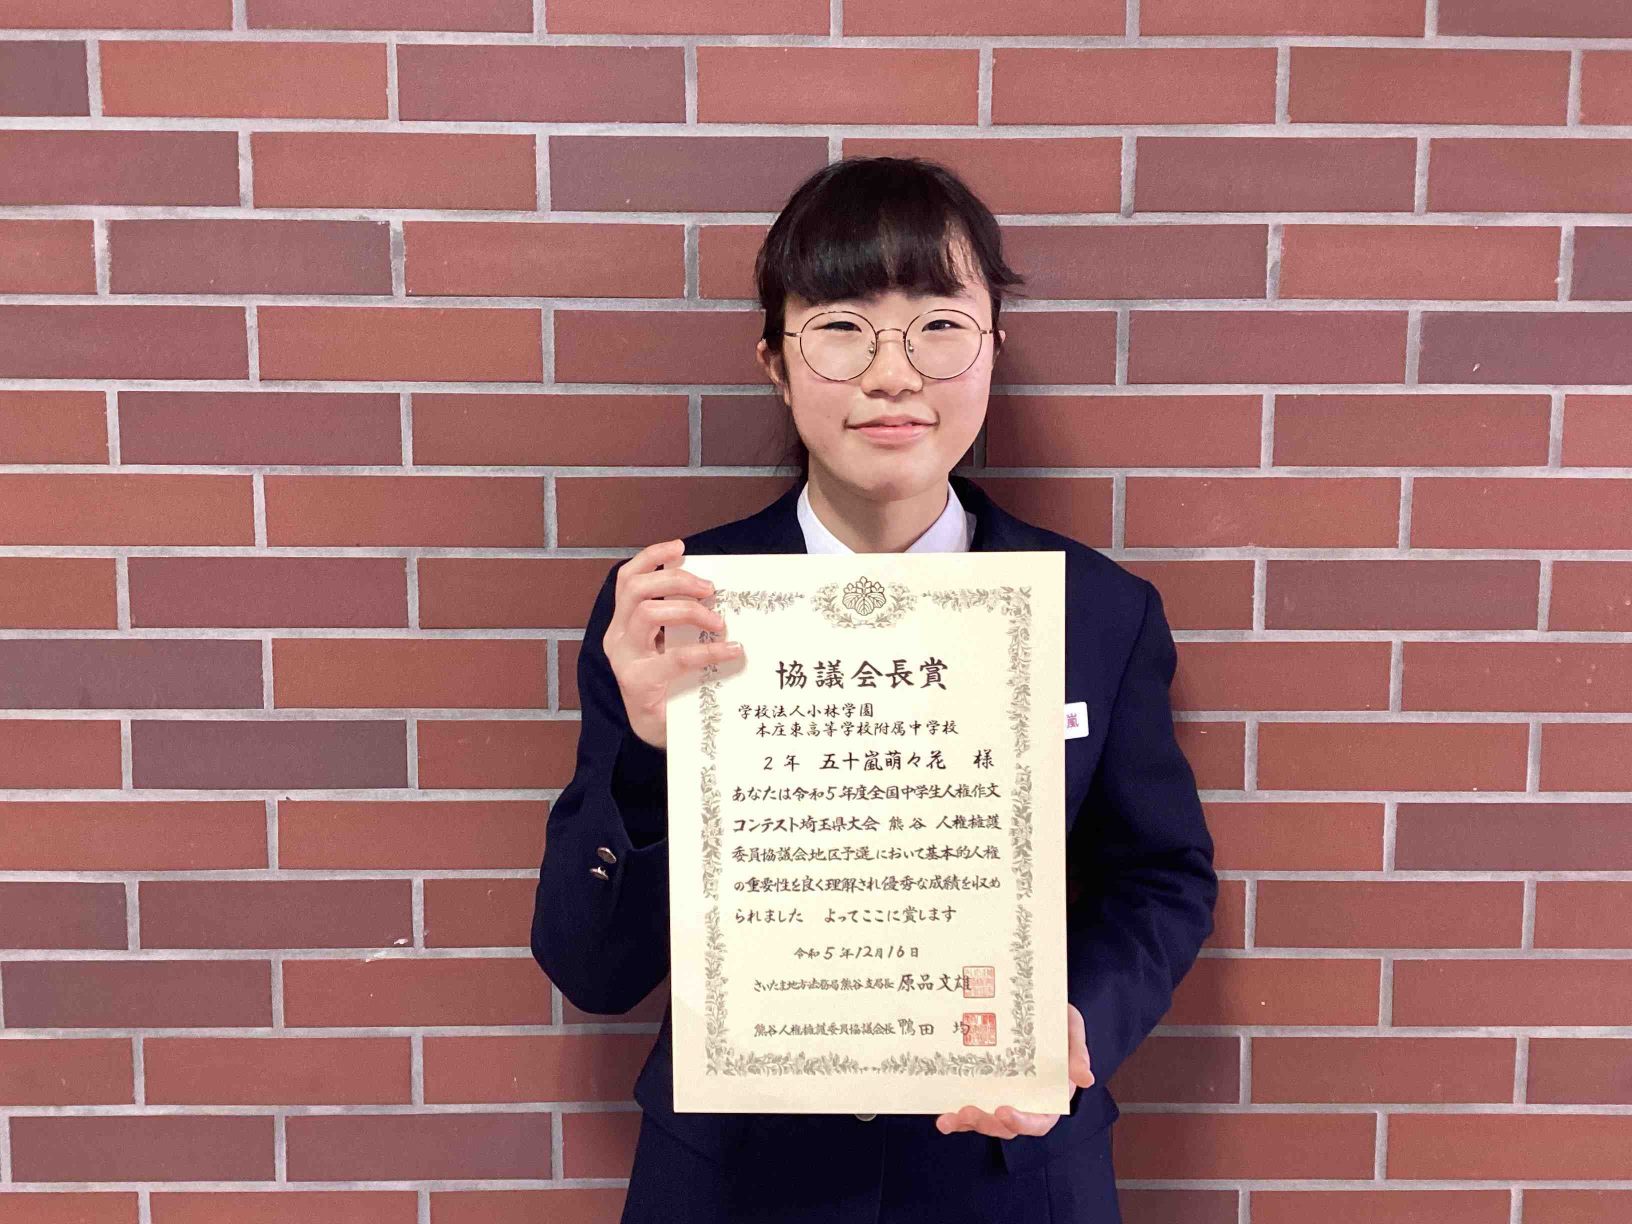 協議会長賞
学校法人小林学園
本庄東高等学校附属中学校
2年 五十嵐萌々花 様
あなたは令和5年度全国中学生人権作文
コンテスト埼玉県大会 熊谷 人権擁護
委員協議会地区予選において基本的人権
の重要性を良く理解され優秀な成績を収め
られました よってここに賞します
令和5年12月16日
さいたま地方法務局熊谷支局長 原品文雄
熊谷人権擁護委員協議会長 鴨田 均
嵐